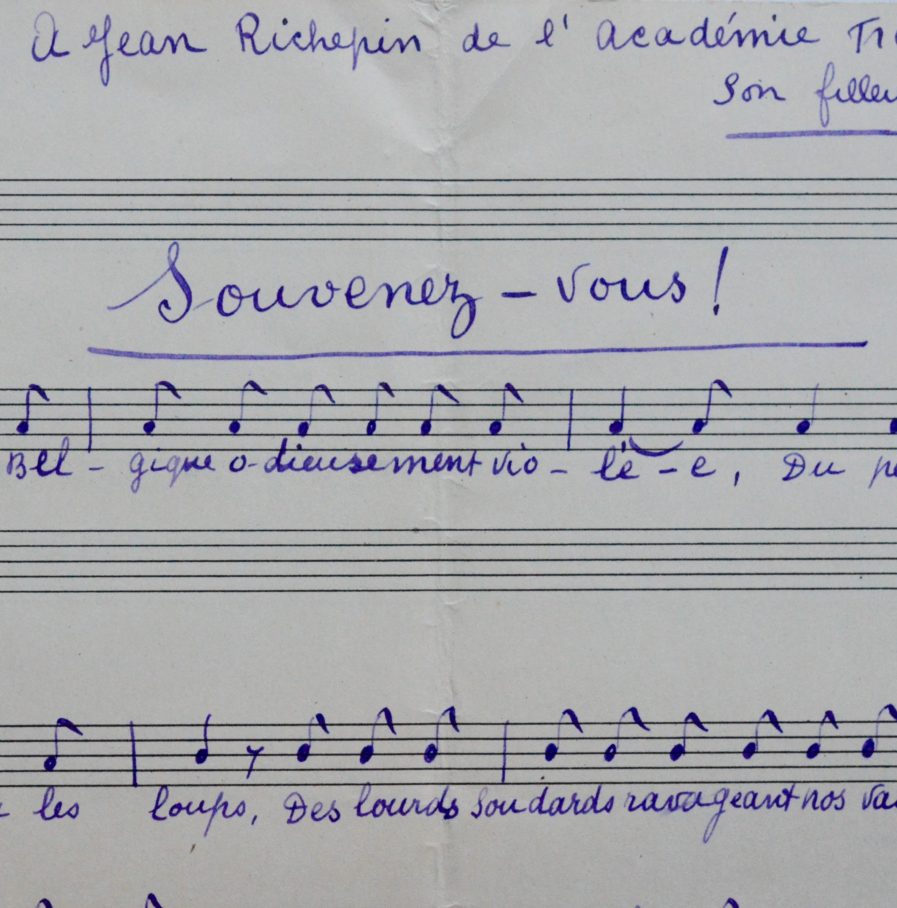 A Jean Richepin de l' Académie
Son
Souvenez - vous !
Bel - gique o-dieusement vio - lé - e, Du
les loups, Des lourds soudards ravageant nos